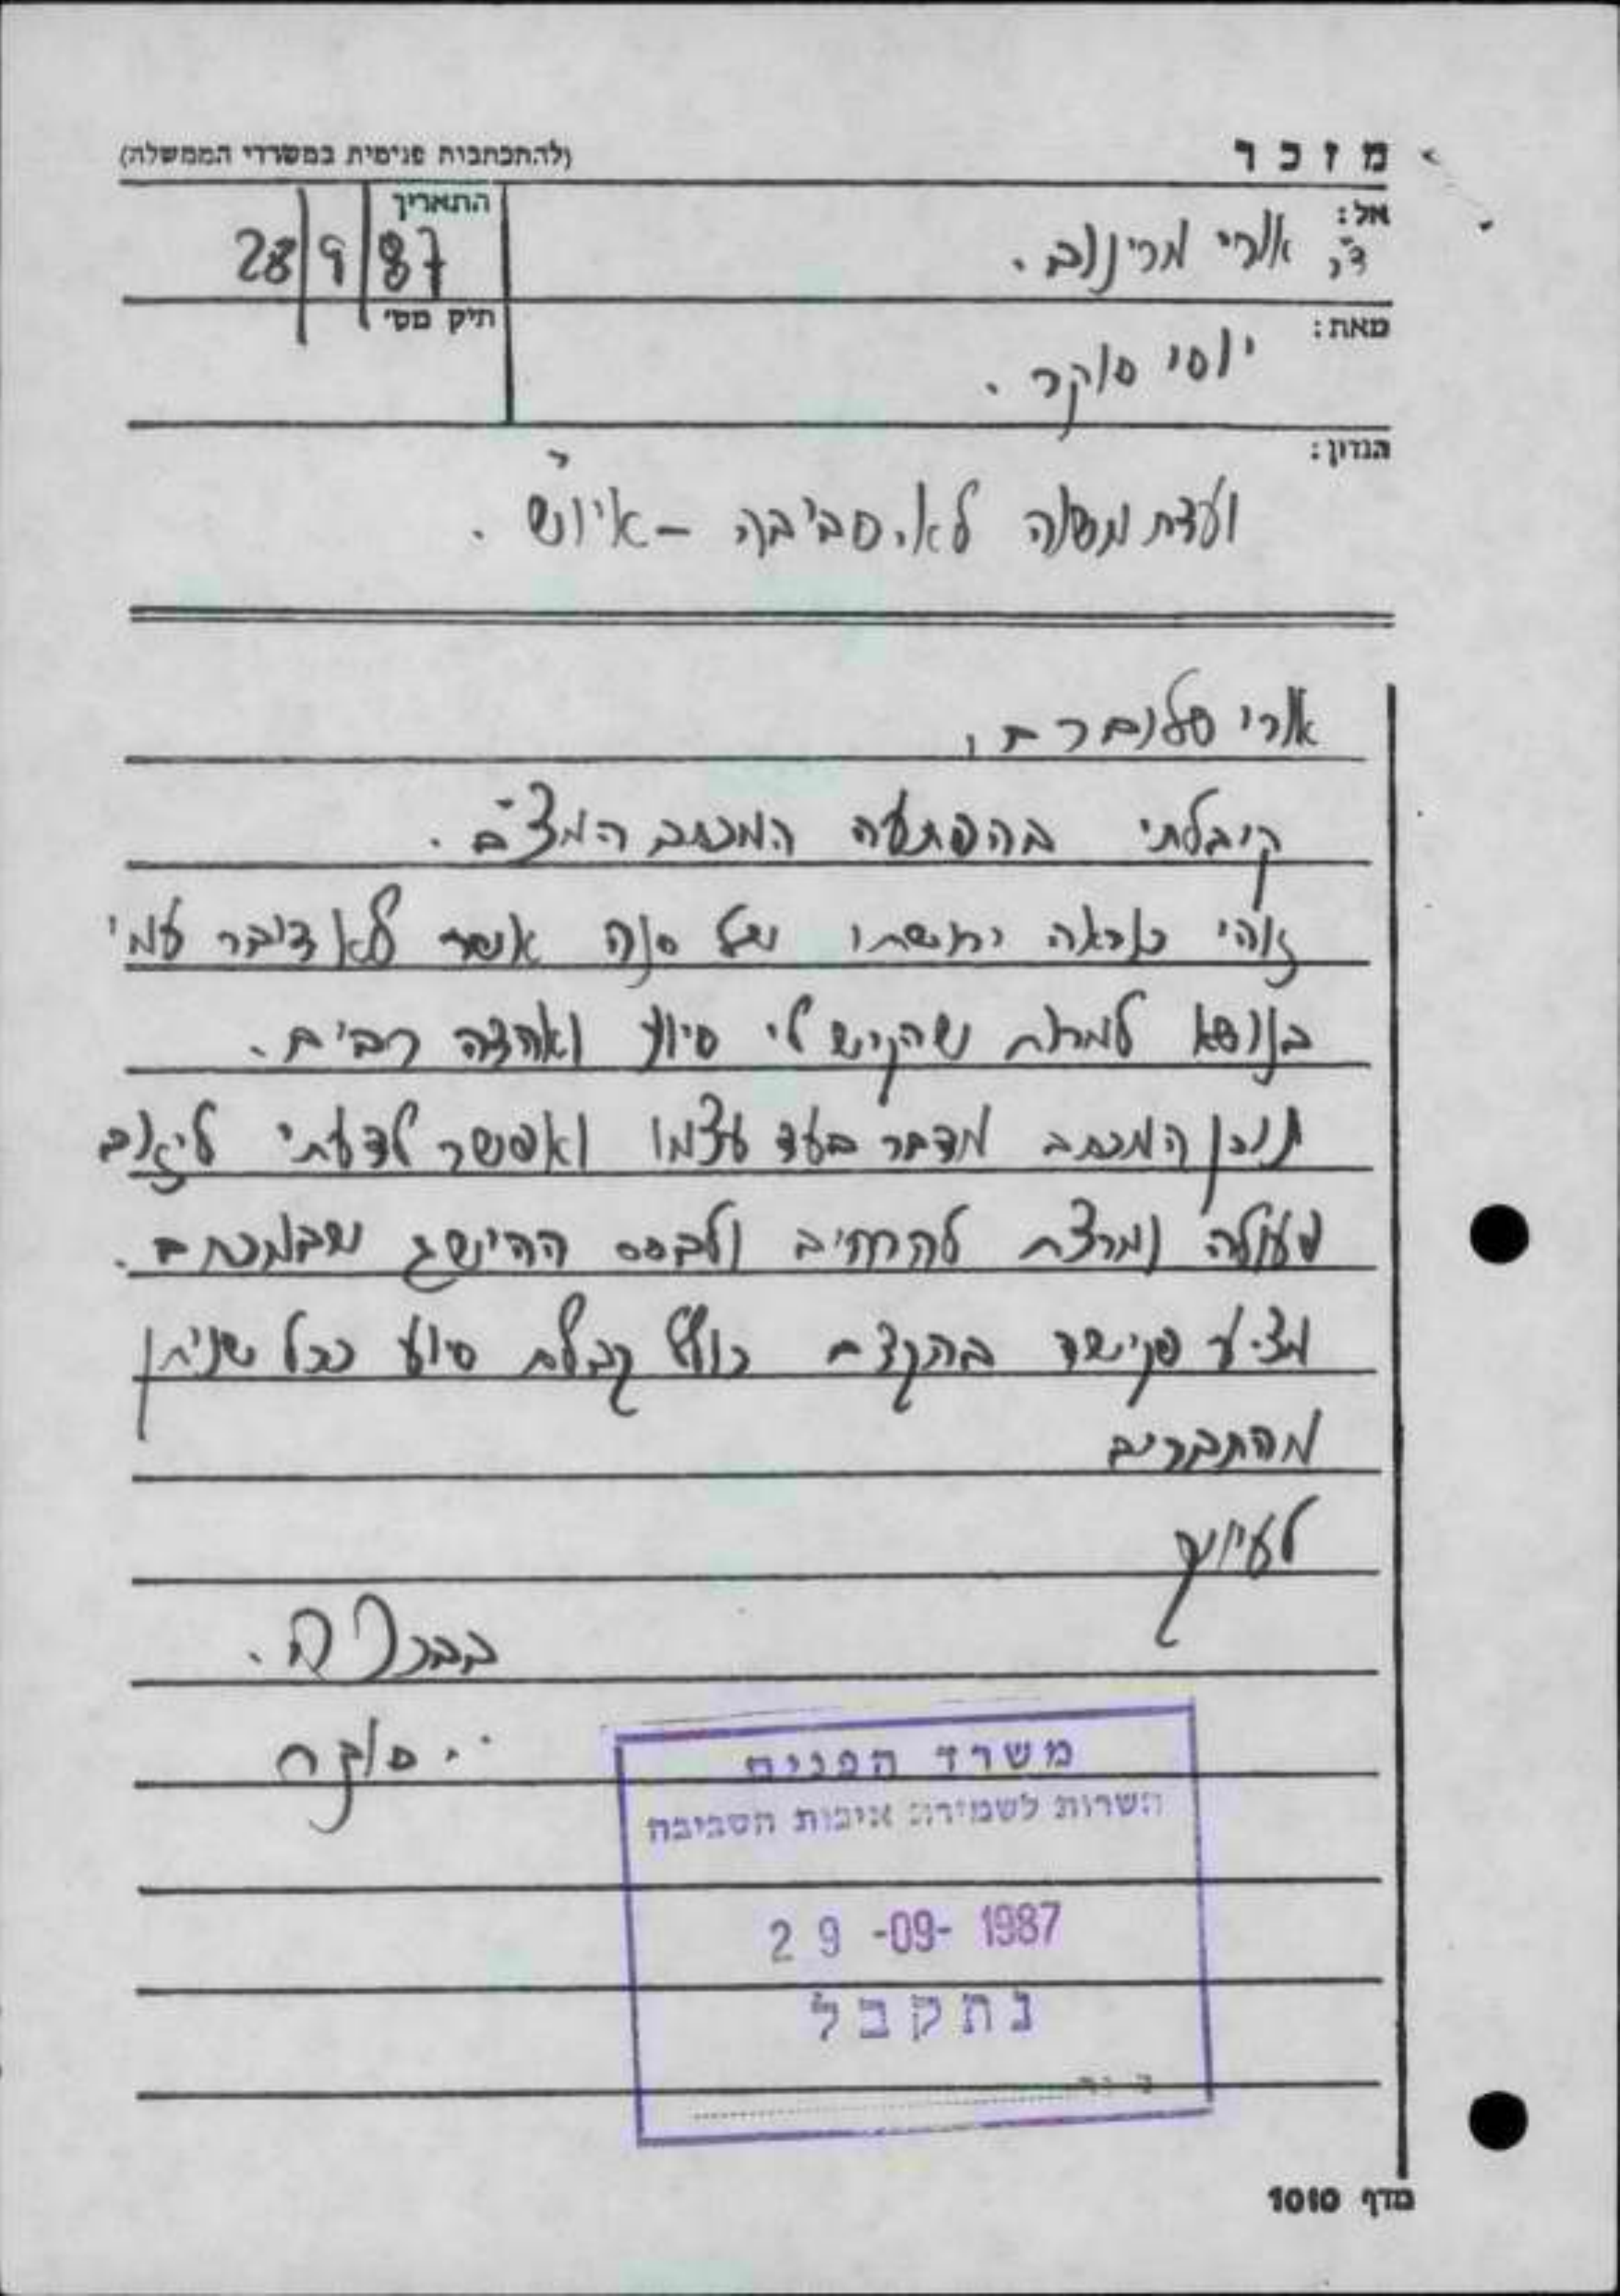 מזכר
(להתכתבות פנימית במשרדי הממשלה)
אל:
ד"ר אורי מרינוב.
התאריך
28 9 87
מאת:
יוסי סוקר.
תיק מס'
הנדון:
ועדת משנה לאי.סביבה - איו"ש.
אורי שלום רב,
קיבלתי בהפתעה המכתב המצ"ב.
זוהי כנראה של אשר לא דובר עמי
בנושא למרות שהקיש לי סיוע ואהדה רבים.
תוכן המכתב מדבר בעד עצמו ואפשר לדעתי ליזום
פעולה נמרצת להרחיב ולבסס ההישג שבמכתב.
מציע פגישה בהקדם כולל קבלת סיוע ככל שניתן
לעיונך
בברכה.
י. סוקר
משרד הפנים
השרות לשמירת איכות הסביבה
29 -09- 1987
נתקבל
מדף 1010